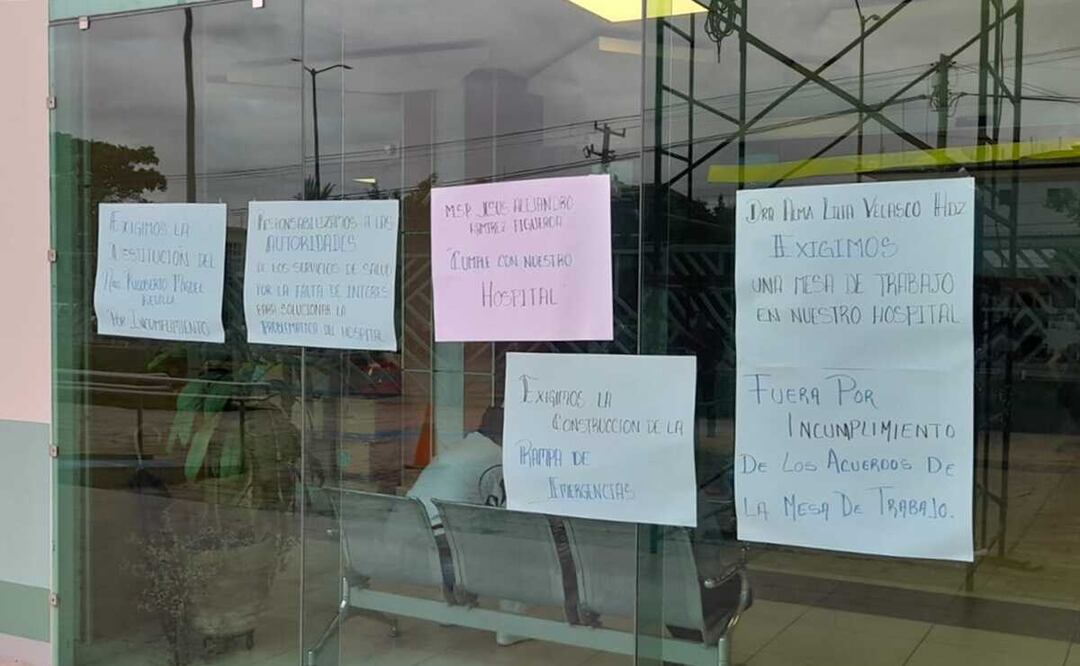 EXIGIMOS LA
DESTITUCIÓN DEL
RIGOBERTO
POR INCUMPLIMIENTO
RESPONSABILIZAMOS A LAS
AUTORIDADES
DE LOS SERVICIOS DE SALUD
POR LA FALTA DE INTERES
PARA SOLUCIONAR LA
PROBLEMATICA DEL HOSPITAL
M.S.P. JESUS ALEJANDRO
RAMIREZ FIGUEROA
CUMPLE CON NUESTRO
HOSPITAL
EXIGIMOS LA
CONSTRUCCION DE LA
RAMPA DE
EMERGENCIAS
DRA ALMA LILIA VELASCO HDZ
EXIGIMOS
UNA MESA DE TRABAJO
EN NUESTRO HOSPITAL
FUERA POR
INCUMPLIMIENTO
DE LOS ACUERDOS DE
LA MESA DE TRABAJO.